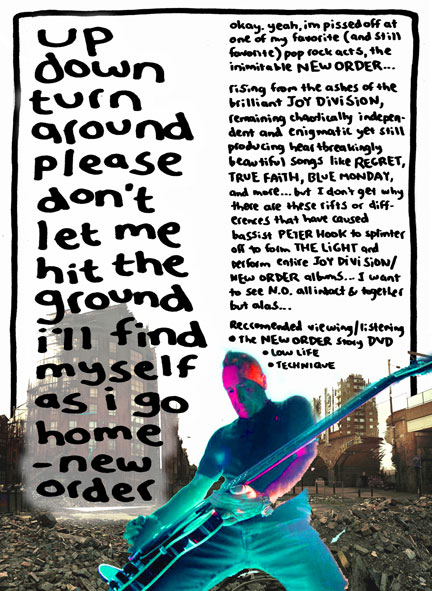 up
down
turn
around
please
don't
let me
hit the
ground
i'll find
myself
as i go
home
-new
order
okay. yeah, im pissed off at
one of my favorite (and still
favorite) pop rock acts, the
inimitable NEW ORDER...
rising from the ashes of the
brilliant JOY DIVISION,
remaining chaotically indepen-
dent and enigmatic yet still
producing heartbreakingly
beautiful songs like REGRET,
TRUE FAITH, BLUE MONDAY,
and more... but I don't get why
there are these rifts or diff-
erences that have caused
bassist PETER HOOK to splinter
off to form THE LIGHT and
perform entire JOY DIVISION/
NEW ORDER albums... I want
to see N.O. all intact & together
but alas...
Reccomended viewing/listening
• The NEW ORDER Story DVD
• LOW LIFE
• TECHNIQUE